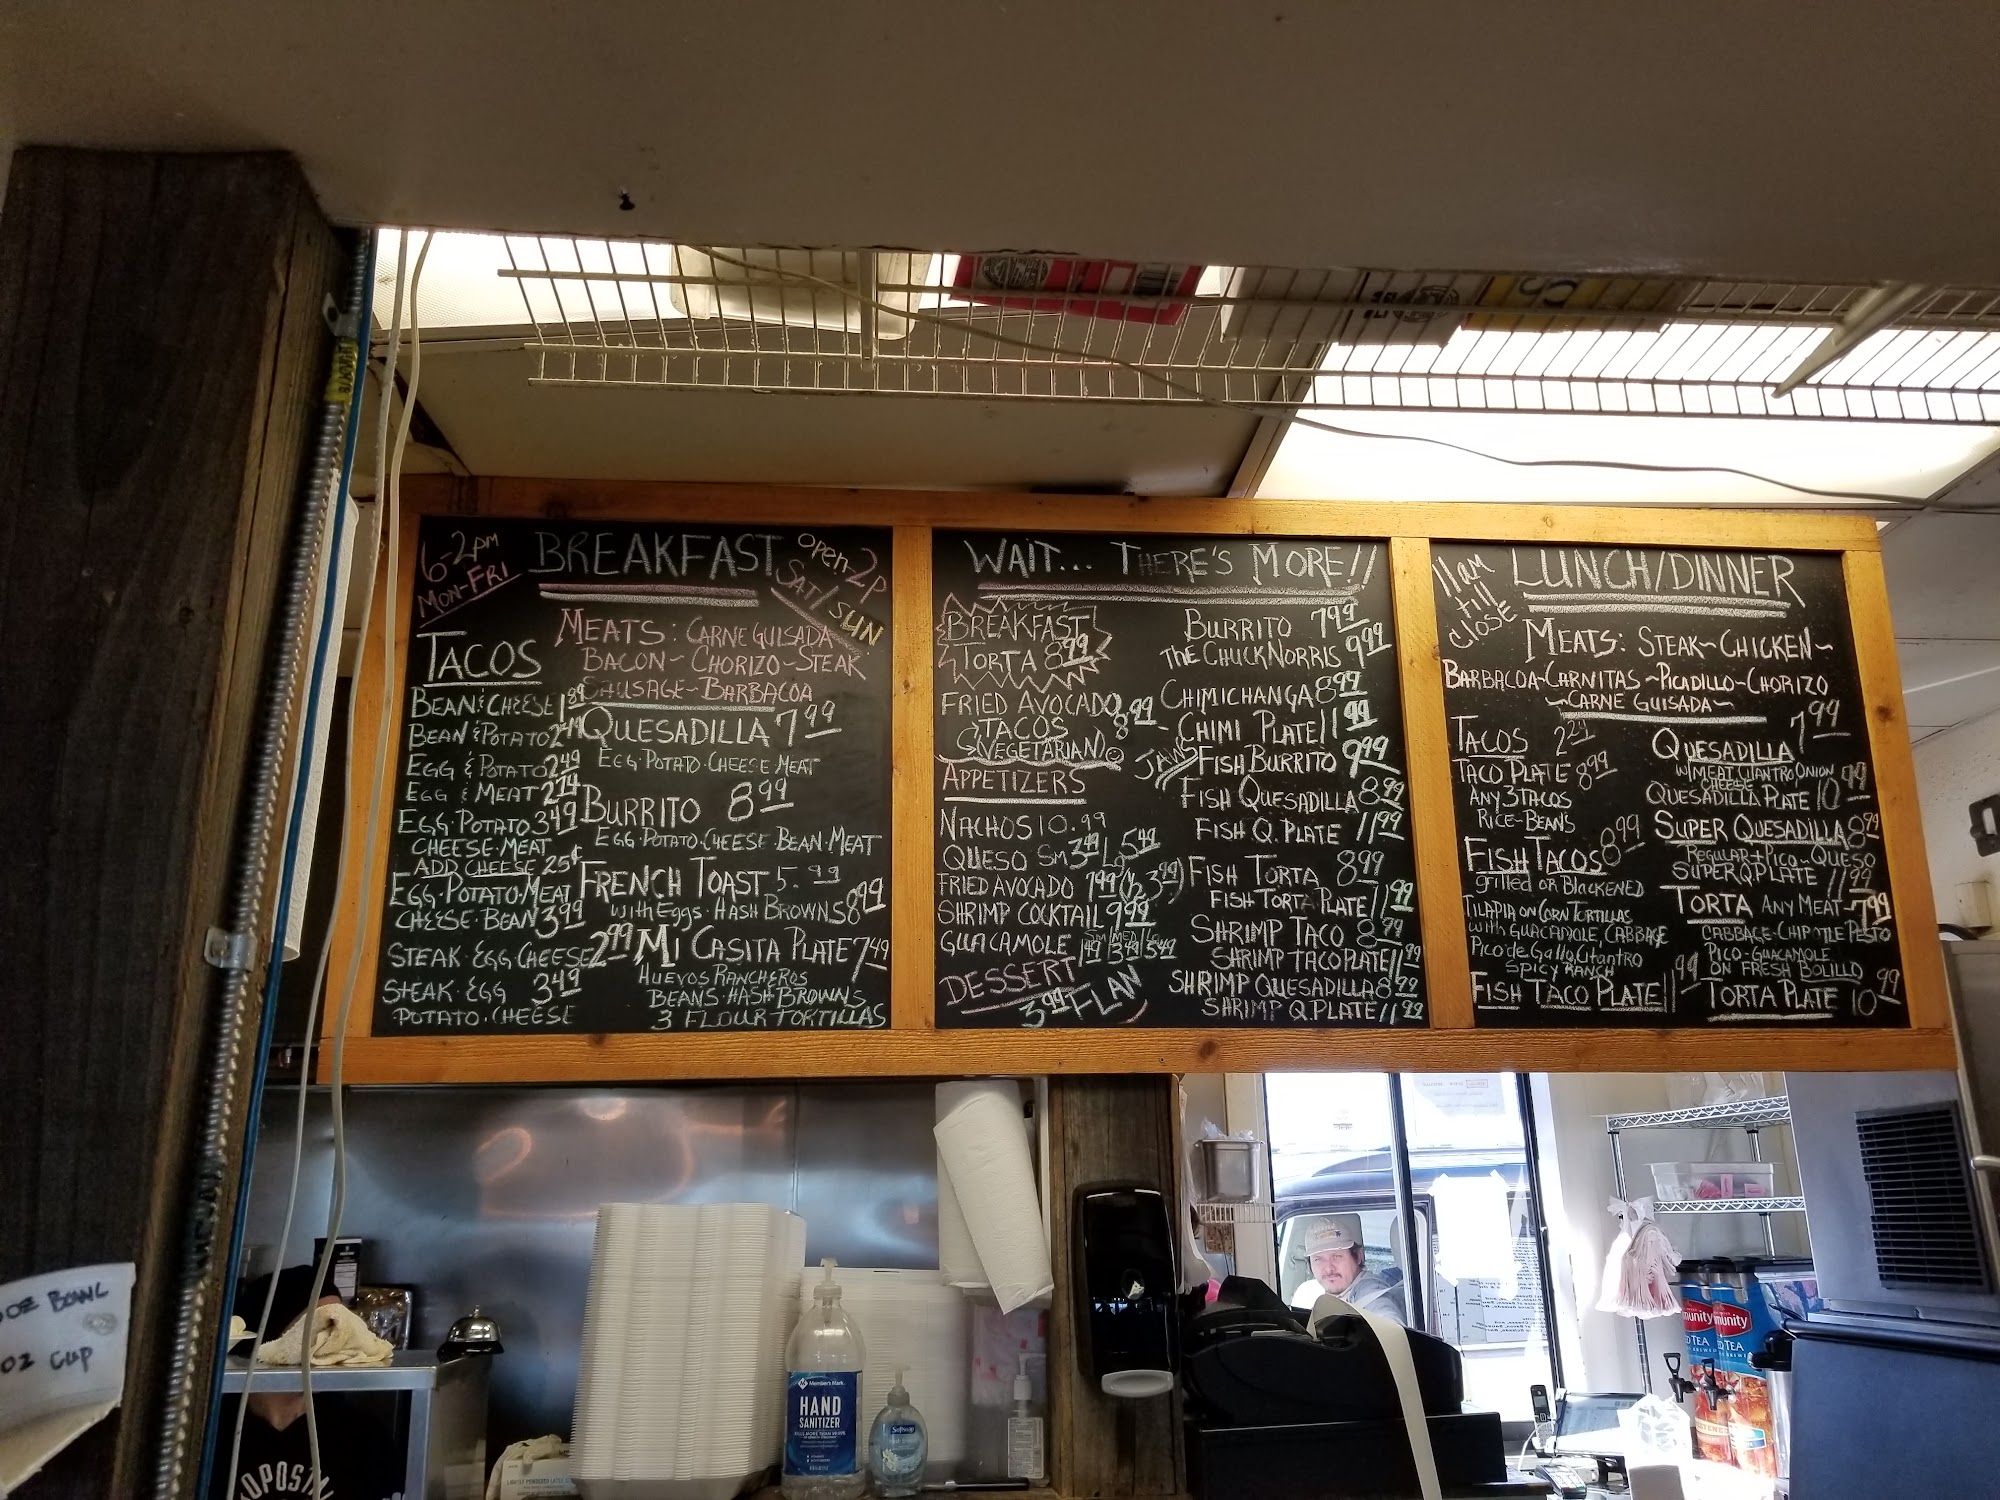 6-2pm
MON-FRI
BREAKFAST
OPEN-2P
SAT/SUN
MEATS: CARNE GUISADA
BACON~ CHORIZO~STEAK
SAUSAGE~BARBACOA
TACOS
BEAN & CHEESE 1.89
BEAN & POTATO
EGG & POTATO 2.49
EGG & MEAT
EGG·POTATO 3.49
CHEESE·MEAT
ADD CHEESE 25¢
EGG·POTATO·MEAT
CHEESE·BEAN 3.99
STEAK·EGG CHEESE 2.99
STEAK·EGG 3.49
POTATO·CHEESE
QUESADILLA 7.99
EGG·POTATO·CHEESE·MEAT
BURRITO 8.99
EGG·POTATO·CHEESE·BEAN·MEAT
FRENCH TOAST 5.99
WITH EGGS·HASH BROWNS 8.99
MI CASITA PLATE 7.49
HUEVOS RANCHEROS
BEANS·HASH BROWNS
3 FLOUR TORTILLAS
WAIT... THERE'S MORE!!
BREAKFAST
TORTA 8.99
FRIED AVOCADO
TACOS 8.99
(VEGETARIAN)
APPETIZERS
NACHOS 10.99
QUESO Sm 3.49 Lg 5.49
FRIED AVOCADO 7.99 (1/2 3.99)
SHRIMP COCKTAIL 9.99
GUACAMOLE Sm 1.49 Me 3.49 LG 5.49
DESSERT
3.99 FLAN
BURRITO 7.99
THE CHUCK NORRIS 9.99
CHIMICHANGA 8.99
CHIMI PLATE 11.99
FISH BURRITO 9.99
FISH QUESADILLA 8.99
FISH Q. PLATE 11.99
FISH TORTA 8.99
FISH TORTA PLATE 11.99
SHRIMP TACO 8.99
SHRIMP TACO PLATE 11.99
SHRIMP QUESADILLA 8.99
SHRIMP Q.PLATE 11.99
11am
till
close
LUNCH/DINNER
MEATS: STEAK~CHICKEN~
BARBACOA~CARNITAS~PICADILLO~CHORIZO
~CARNE GUISADA~
TACOS 2.29
TACO PLATE 8.99
ANY 3 TACOS
RICE-BEANS
FISH TACOS 8.99
grilled OR BLACKENED
TILAPIA ON CORN TORTILLAS
WITH GUACAMOLE, CABBAGE
PICO de GALLO, CILANTRO
SPICY RANCH
FISH TACO PLATE 11.99
QUESADILLA 7.99
W/MEAT CILANTRO ONION
CHEESE
QUESADILLA PLATE 10.99
SUPER QUESADILLA 8.99
REGULAR + PICO ~ QUESO
SUPER Q.PLATE 11.99
TORTA ANY MEAT 7.99
CABBAGE·CHIPOTLE PESTO
PICO-GUACAMOLE
ON FRESH BOLILLO
TORTA PLATE 10.99
OZ BOWL
OZ CUP
Member's Mark
HAND
SANITIZER
Softsoap
munity
munity
TEA
TEA